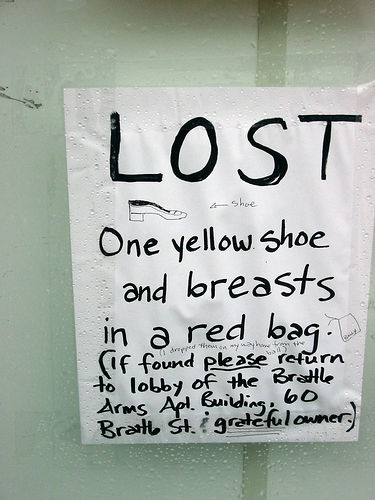 LOST
← shoe
One yellow shoe
and breasts
in a red bag.
(I dropped them on my way home from the
ball)
(If found please return
to lobby of the Brattle
Arms Apt. Building, 60
Brattle St. grateful owner.)